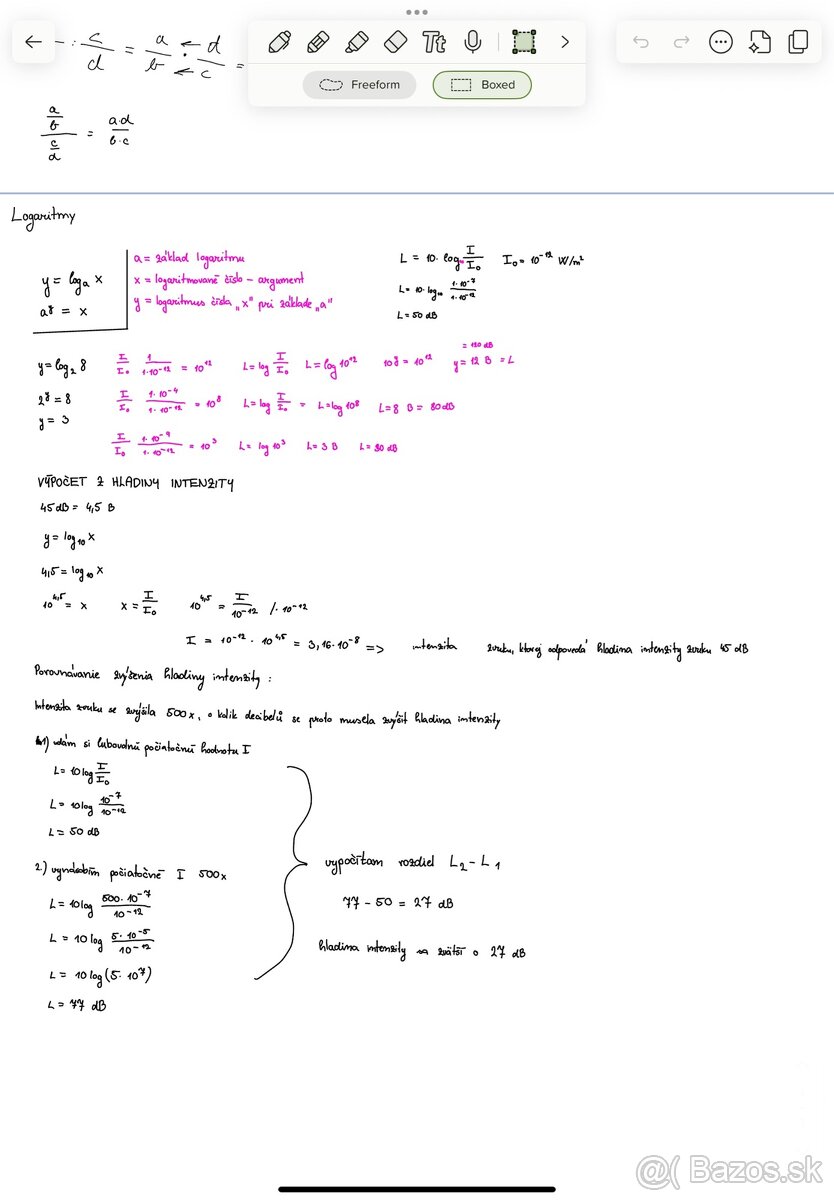 c/d = a/b · d/c =
Tt
Freeform Boxed
a/b / c/d = a·d / b·c
Logaritmy
y = logₐ x
aʸ = x
a = základ logaritmu
x = logaritmované číslo - argument
y = logaritmus čísla "x" pri základe "a"
L = 10· log I/I₀ I₀ = 10⁻¹² W/m²
L = 10· log₁₀ 1·10⁻⁷/1·10⁻¹²
L = 50 dB
y = log₂ 8
2ʸ = 8
y = 3
I/I₀ 1/1·10⁻¹² = 10¹² L = log I/I₀ L = log 10¹² 10ʸ = 10¹² y = 12 B = L
= 120 dB
I/I₀ 1·10⁻⁴/1·10⁻¹² = 10⁸ L = log I/I₀ = L = log 10⁸ L = 8 B = 80 dB
I/I₀ 1·10⁻⁹/1·10⁻¹² = 10³ L = log 10³ L = 3 B L = 30 dB
VÝPOČET Z HLADINY INTENZITY
45 dB = 4,5 B
y = log₁₀ x
4,5 = log₁₀ x
10⁴,⁵ = x x = I/I₀ 10⁴,⁵ = I/10⁻¹² /· 10⁻¹²
I = 10⁻¹² · 10⁴,⁵ = 3,16·10⁻⁸ => intenzita zvuku, ktorej odpovedá hladina intenzity zvuku 45 dB
Porovnávanie zvýšenia hladiny intenzity :
Intenzita zvuku se zvýšila 500x, o kolik decibelů se proto musela zvýšit hladina intenzity
1) dám si ľubovoľnú počiatočnú hodnotu I
L = 10 log I/I₀
L = 10 log 10⁻⁷/10⁻¹²
L = 50 dB
2) vynásobím počiatočné I 500x
L = 10 log 500·10⁻⁷/10⁻¹²
L = 10 log 5·10⁻⁵/10⁻¹²
L = 10 log (5·10⁷)
L = 77 dB
vypočítam rozdiel L₂ - L₁
77 - 50 = 27 dB
hladina intenzity sa zväčší o 27 dB
@( Bazos.sk